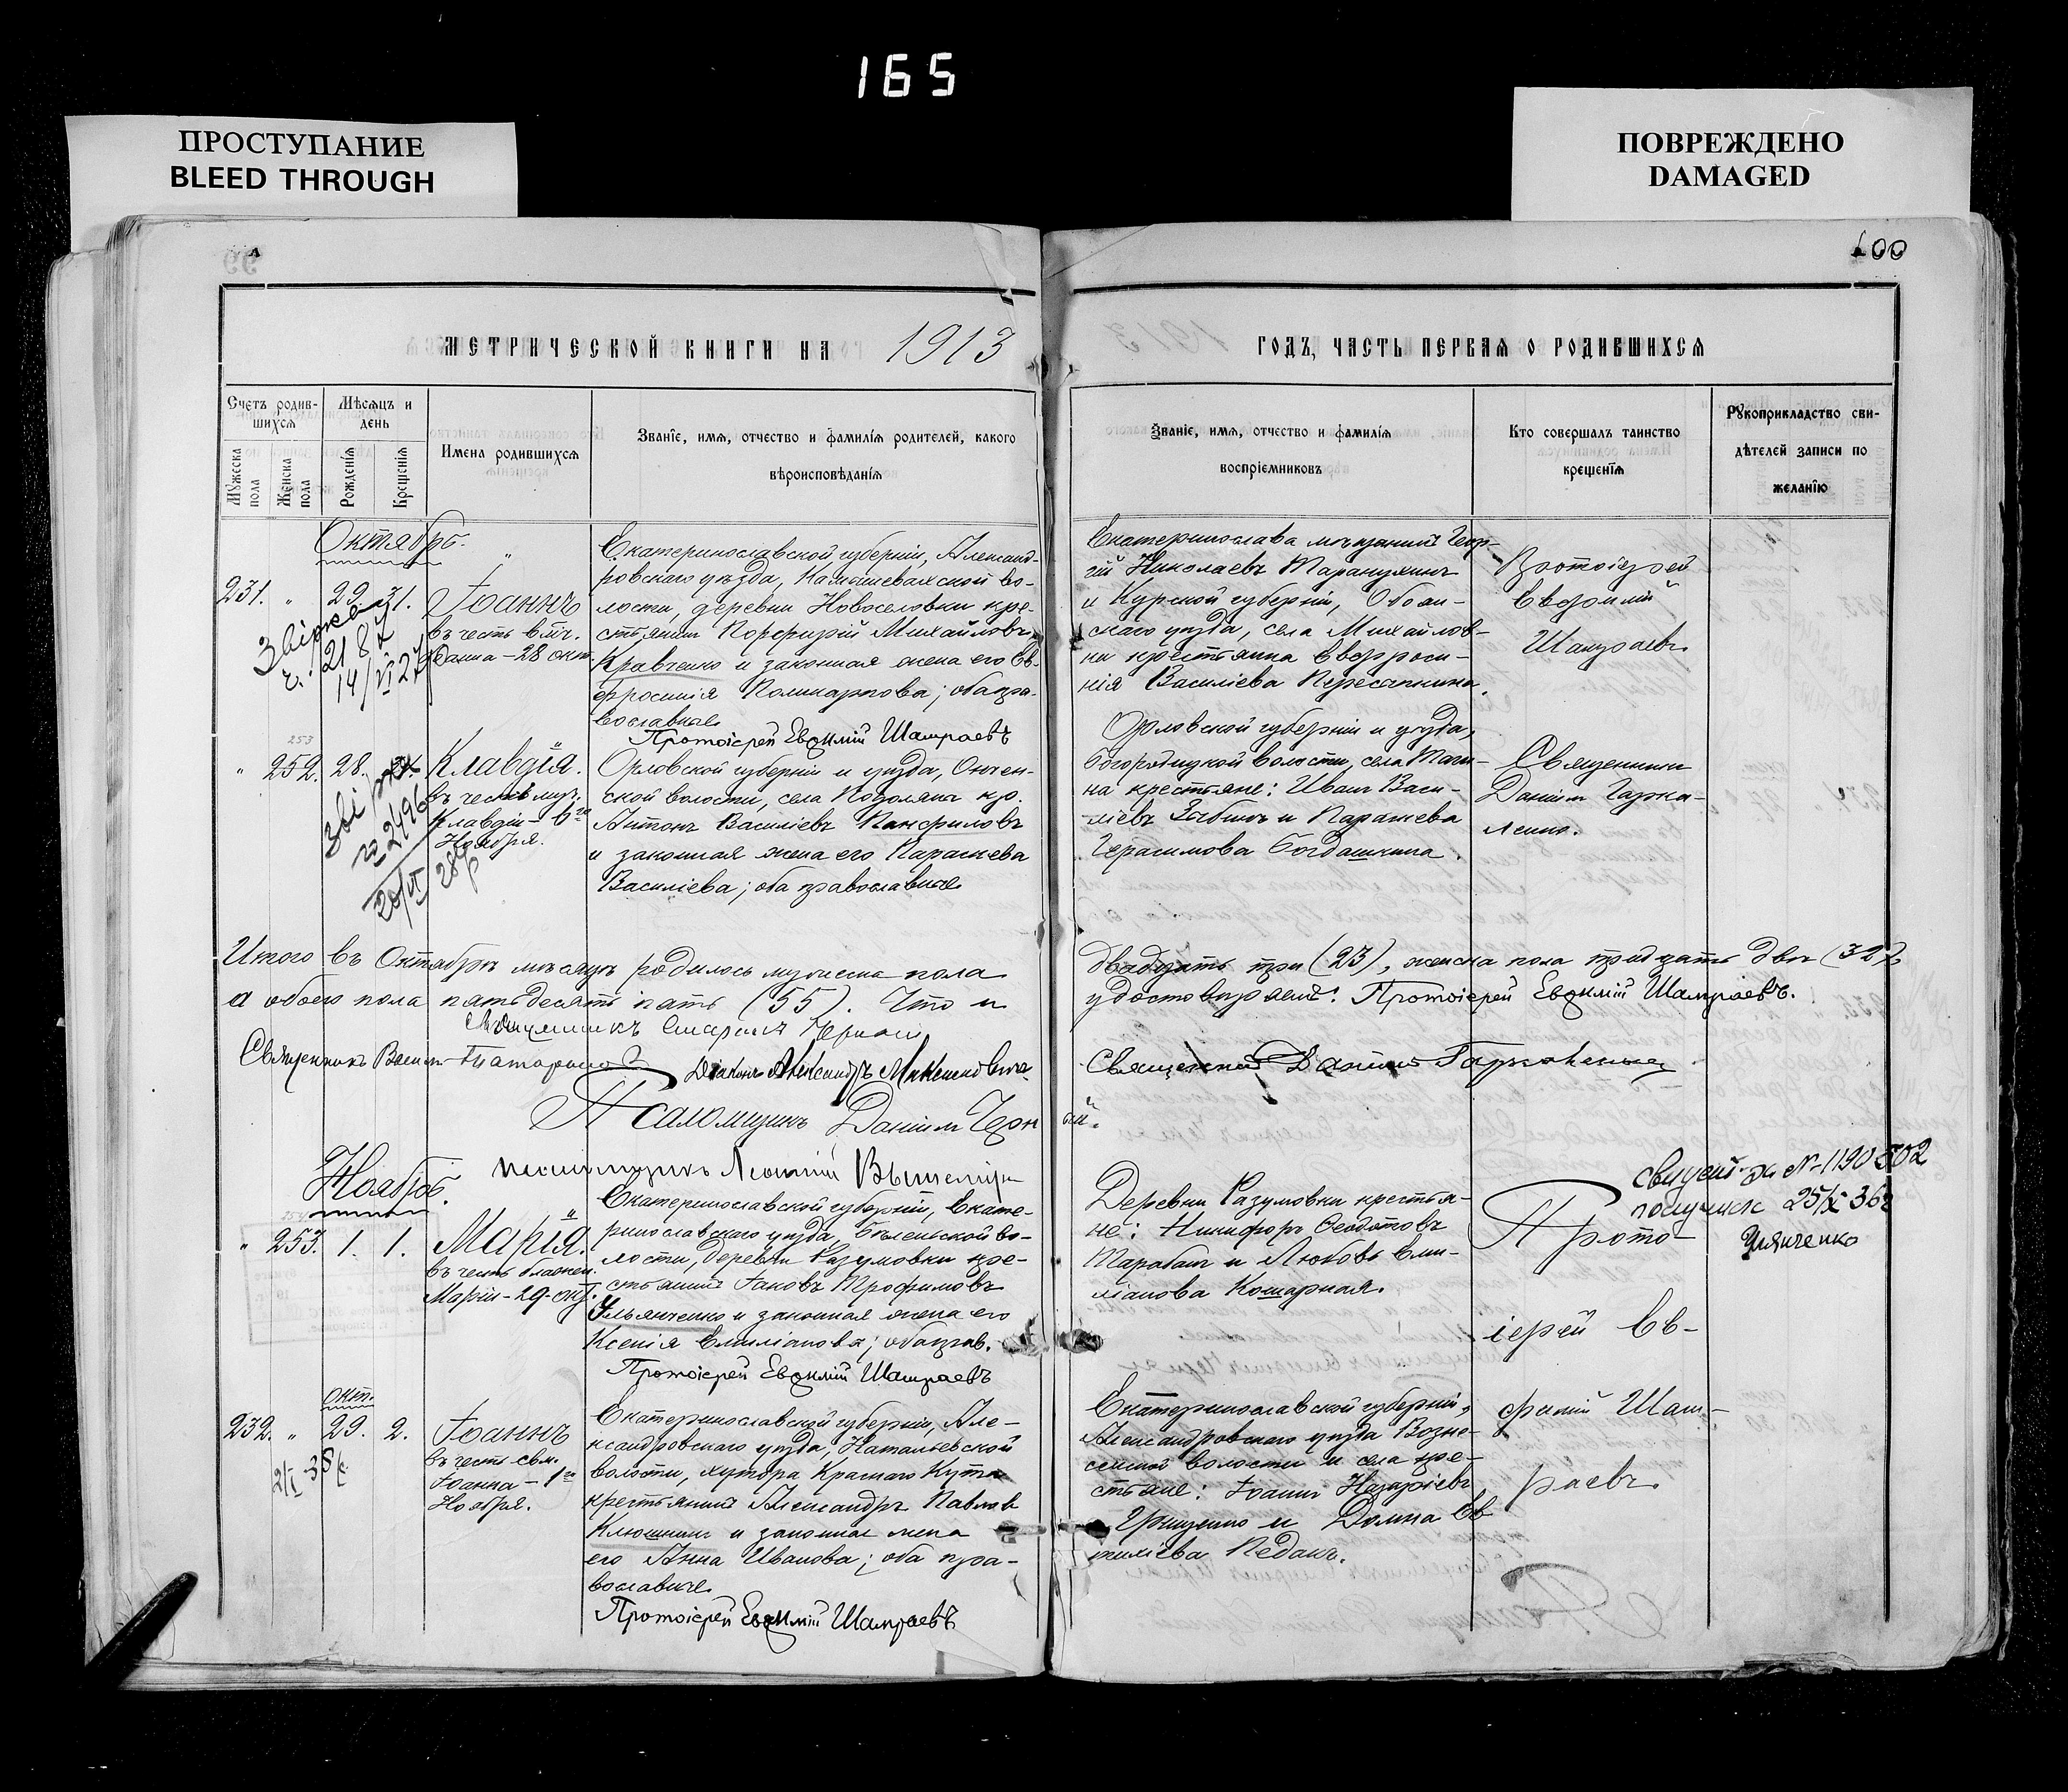 165
ПРОСТУПАНИЕ
BLEED THROUGH
ПОВРЕЖДЕНО
DAMAGED
100
МЕТРИЧЕСКОЙ КНИГИ НА 1913
ГОДЪ, ЧАСТЬ ПЕРВАЯ О РОДИВШИХСЯ
Счетъ родив-
шихся
Мужеска
пола
Женска
пола
Мѣсяцъ и
день
Рожденія
Крещенія
Имена родившихся
Званіе, имя, отчество и фамилія родителей, какого
вѣроисповѣданія
Званіе, имя, отчество и фамилія
воспріемниковъ
Кто совершалъ таинство
крещенія
Рукоприкладство сви-
дѣтелей записи по
желанію
Октябрь.
231. " 29. 31.
Іоаннъ
въ честь вмч.
Іоанна - 28 окт.
Екатеринославской губерніи, Александ-
ровскаго уѣзда, Камышевахской во-
лости, деревни Новоселовки кре-
стьянинъ Порфирій Михайловъ
Кравченко и законная жена его Ев-
фросинія Поликарпова; оба пра-
вославные
Протоіерей Евѳимій Шамраевъ
Екатеринослава мѣщанинъ Геор-
гій Николаевъ Таранухинъ
и Курской губерніи, Обоян-
скаго уѣзда, села Михайлов-
ки крестьянка Евфроси-
нія Василіева Пересыпкина.
Протоіерей
Евфимій
Шамраевъ
253
" 252. 28.
Клавдія.
въ честь муч.
Клавдіи - 6го
Ноября.
Орловской губерніи и уѣзда,
ской волости, села Подоляна кр.
Антонъ Василіевъ Панфиловъ
и законная жена его Параскева
Василіева; оба православные
Орловской губерніи и уѣзда,
Богородицкой волости, села
на крестьяне: Иванъ Васи-
ліевъ Зыбинъ и Параскева
Герасимова Богдашкина.
Священникъ
Даніилъ Гарка-
ленко.
Итого въ Октябрѣ мѣсяцѣ родилось мужеска пола
двадцать три (23), женска пола тридцать двѣ (32),
а обоего пола пятьдесятъ пять (55). Что и
удостовѣряемъ: Протоіерей Евѳимій Шамраевъ.
Священникъ
Священникъ
Діаконъ Александръ
Священникъ Даніилъ
Псаломщикъ Даніилъ Черн ый.
Ноябрь.
Псаломщикъ Леонтій
" 253. 1. 1.
Марія.
въ честь
Маріи - 29 - окт.
Екатеринославской губерніи, Екате-
ринославскаго уѣзда, Бѣленьской во-
лости, деревни Разумовки кре-
стьянинъ Іаковъ Трофимовъ
Ульянченко и законная жена его
Ксенія Емиліанова; оба прав.
Протоіерей Евѳимій Шамраевъ
Деревни Разумовки крестья-
не: Никифоръ Ѳеодотовъ
Тарабанъ и Любовь Еми-
ліанова Кошарная.
Прото-
іерей Ев-
фимій Шам-
раевъ.
свидет. за № 1190502
получил 25/X 36г
Ульянченко
Окт.
232. " 29. 2.
Іоаннъ
въ честь свм.
Іоанна - 1го
Ноября.
Екатеринославской губерніи, Але-
ксандровскаго уѣзда, Натальевской
волости, хутора Краснаго Кута
крестьянинъ Александръ Павловъ
Клюшникъ и законная жена
его Анна Иванова; оба пра-
вославные
Протоіерей Евѳимій Шамраевъ
Екатеринославской губерніи,
Александровскаго уѣзда Возне-
сенской волости и села кре-
стьяне: Іоаннъ Назаріевъ
Грищенко и Домна Ев-
иміева Педанъ.